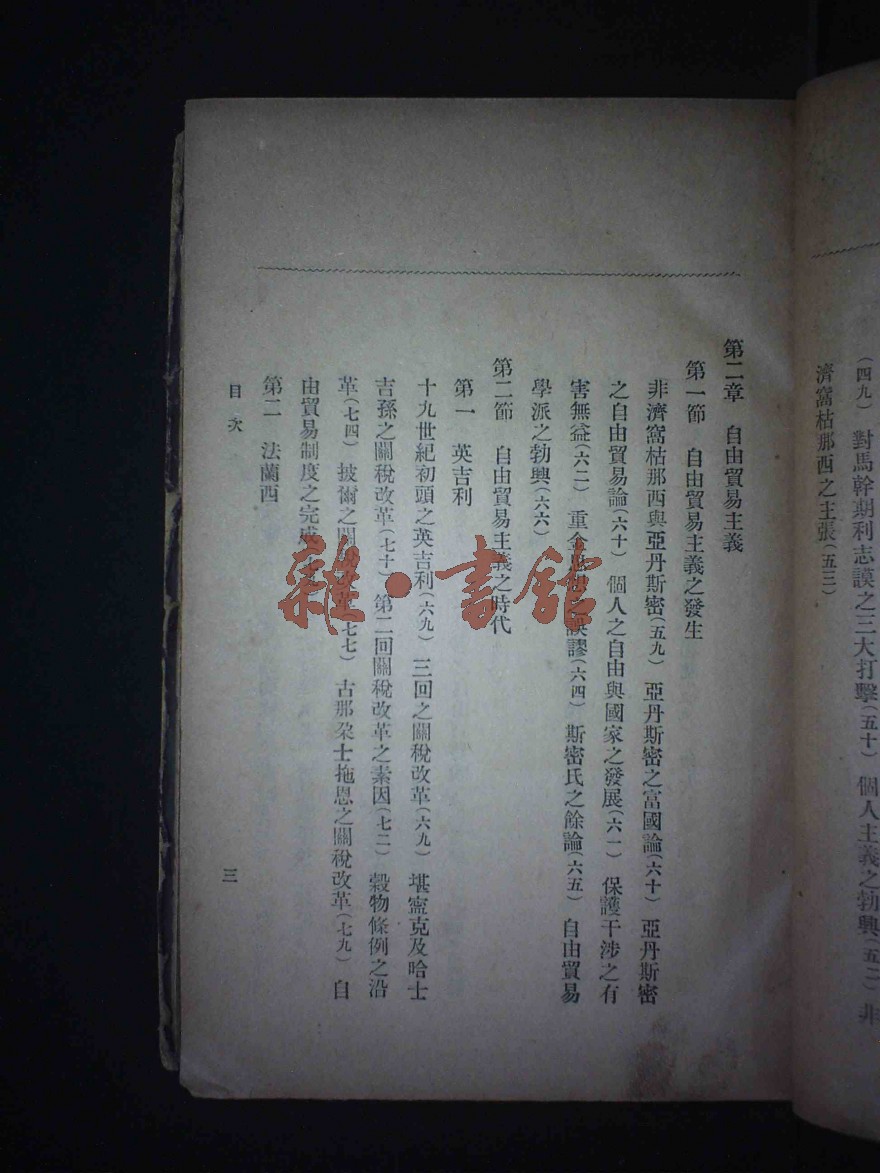 (四九) 對馬幹期利志謨之三大打擊(五十) 個人主義之勃興(五二) 非
濟窩枯那西之主張(五三)
第二章 自由貿易主義
第一節 自由貿易主義之發生
非濟窩枯那西與亞丹斯密(五九) 亞丹斯密之富國論(六十) 亞丹斯密
之自由貿易論(六十) 個人之自由與國家之發展(六一) 保護干涉之有
害無益(六二) 重金思想之誤謬(六四) 斯密氏之餘論(六五) 自由貿易
學派之勃興(六六)
第二節 自由貿易主義之時代
第一 英吉利
十九世紀初頭之英吉利(六九) 三回之關稅改革(六九) 堪寗克及哈士
吉孫之關稅改革(七十) 第二回關稅改革之素因(七二) 穀物條例之沿
革(七四) 披爾之關稅改革(七七) 古那朶士拖恩之關稅改革(七九) 自
由貿易制度之完成
第二 法蘭西
目次
三
雜·書館